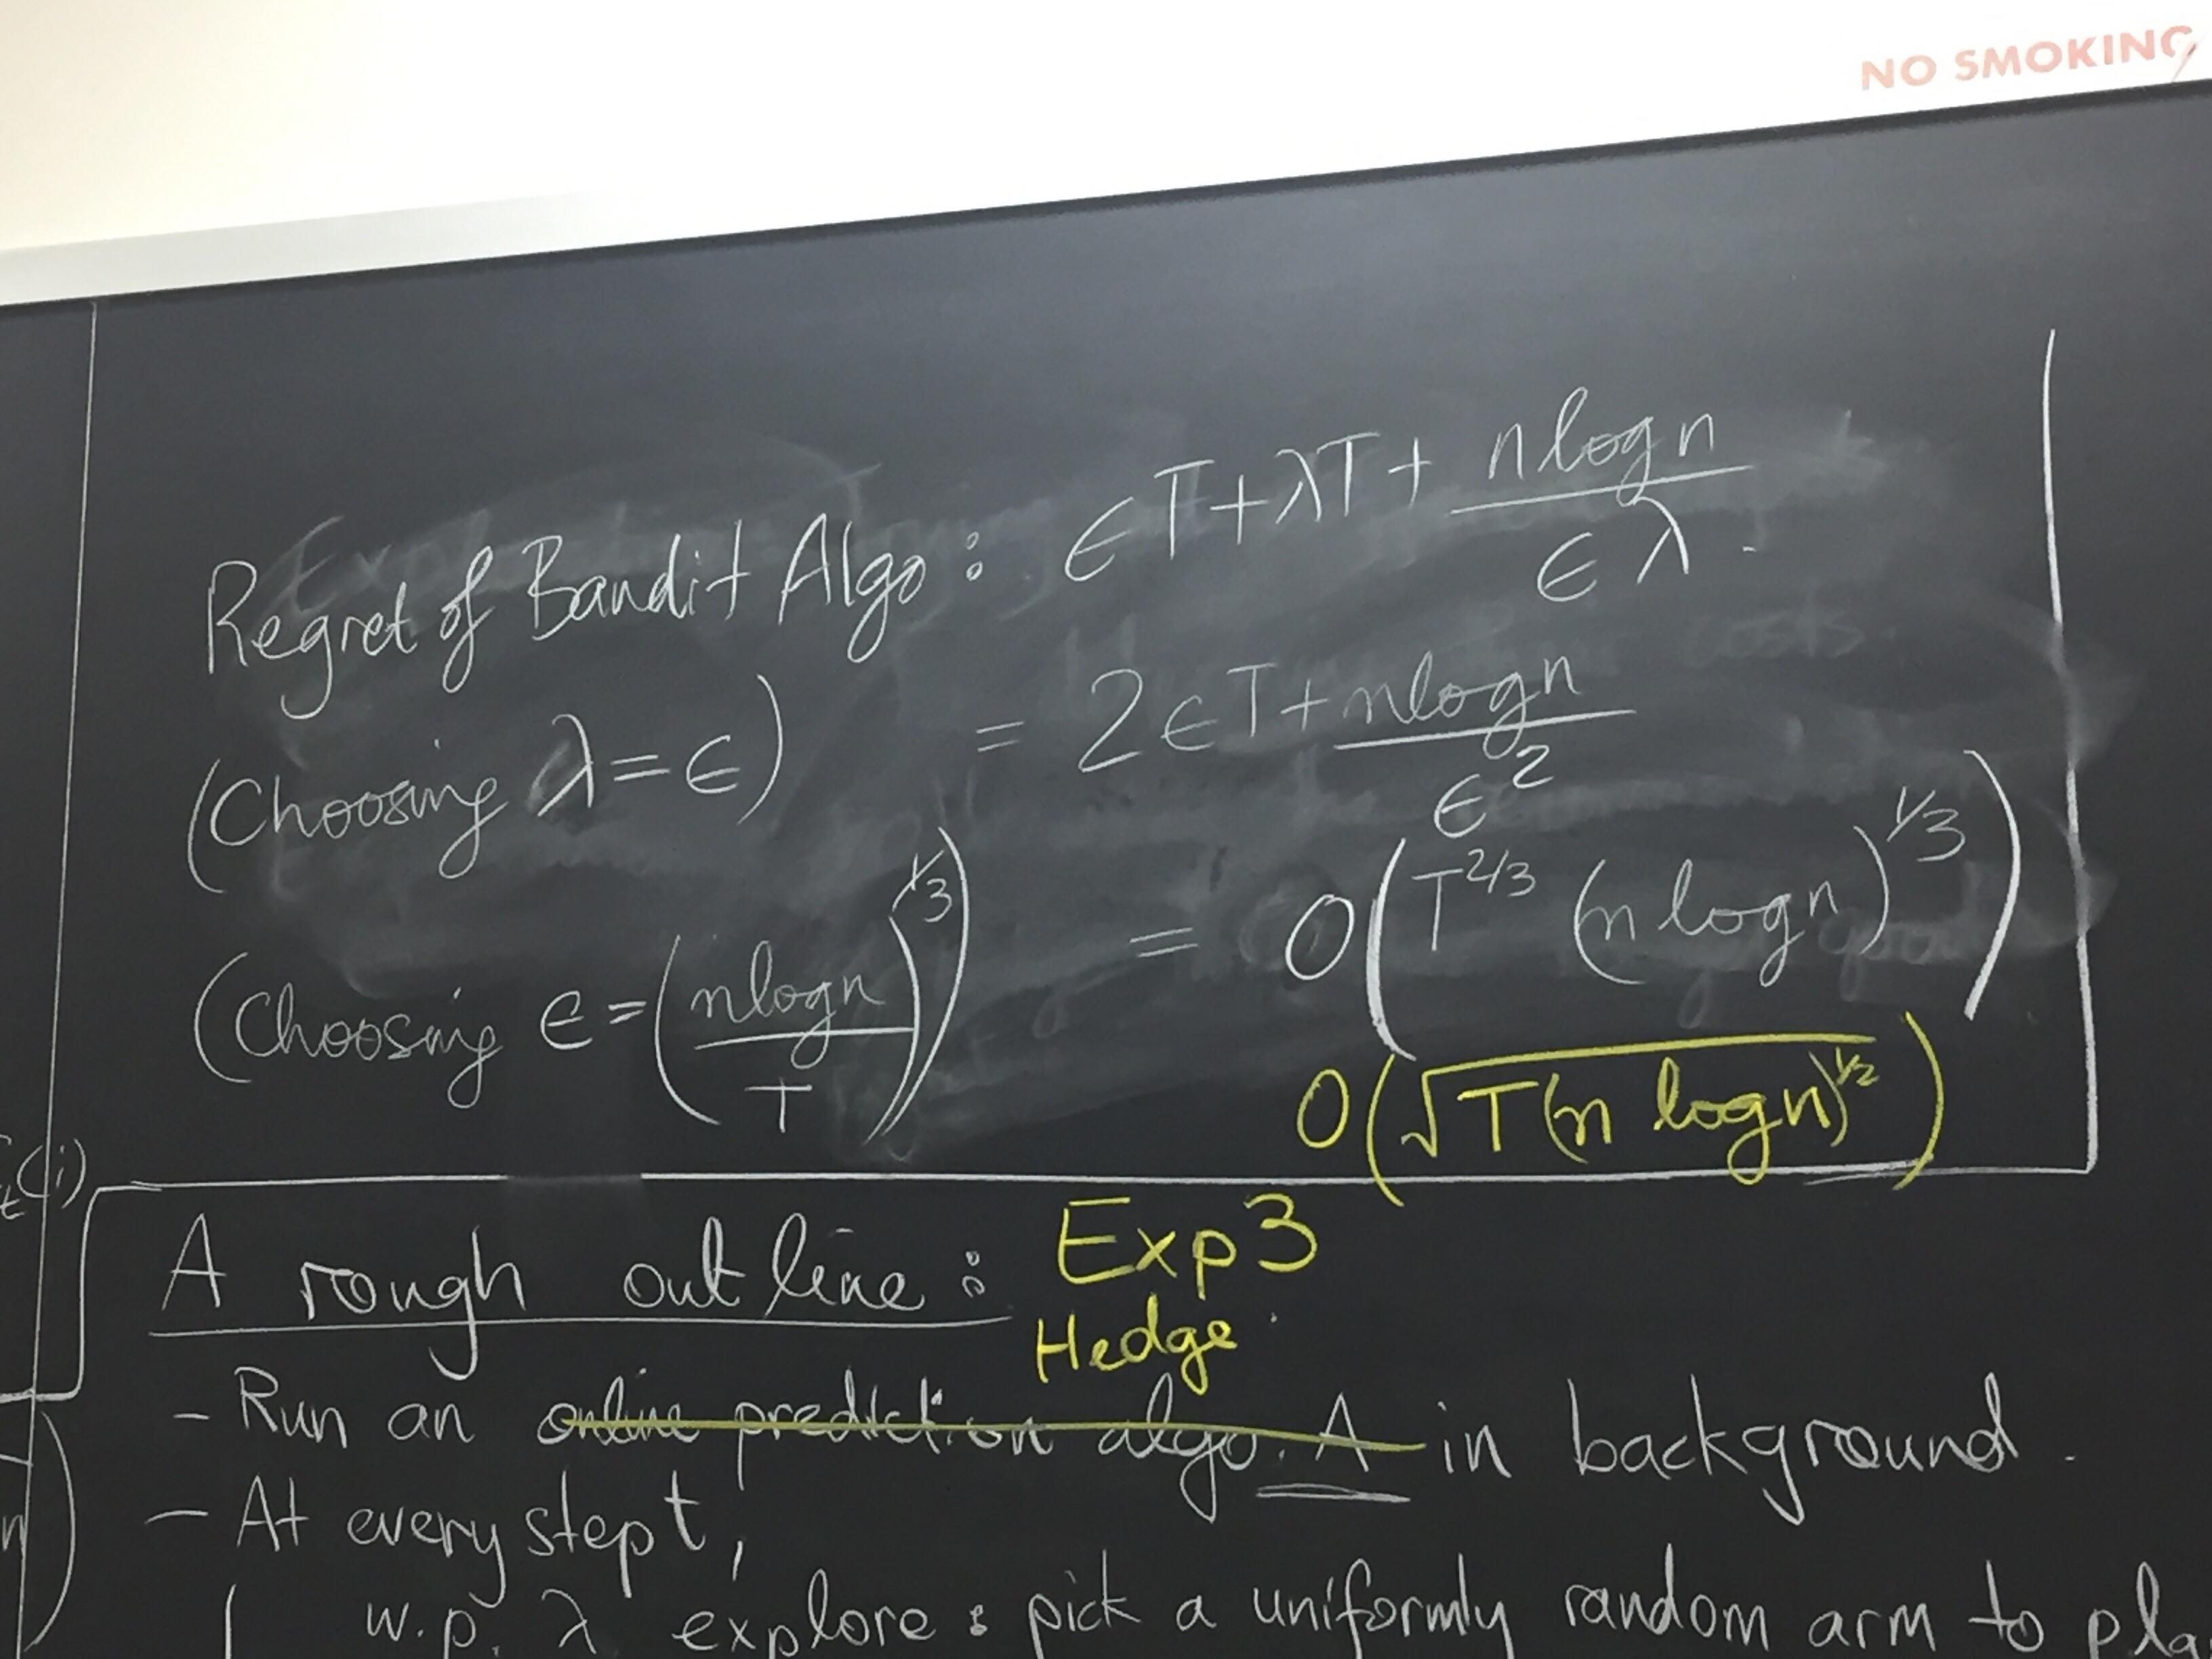 NO SMOKING
Regret of Bandit Algo: ϵT + λT + n log n / ϵλ.
(Choosing λ = ϵ) = 2ϵT + n log n / ϵ²
(Choosing ϵ = (n log n / T)^1/3) = O(T^2/3 (n log n)^1/3)
O(√T(n log n)^1/2)
A rough outline: Exp3
Hedge
- Run an online prediction algo. A in background.
- At every step t,
w.p. λ explore: pick a uniformly random arm to pla